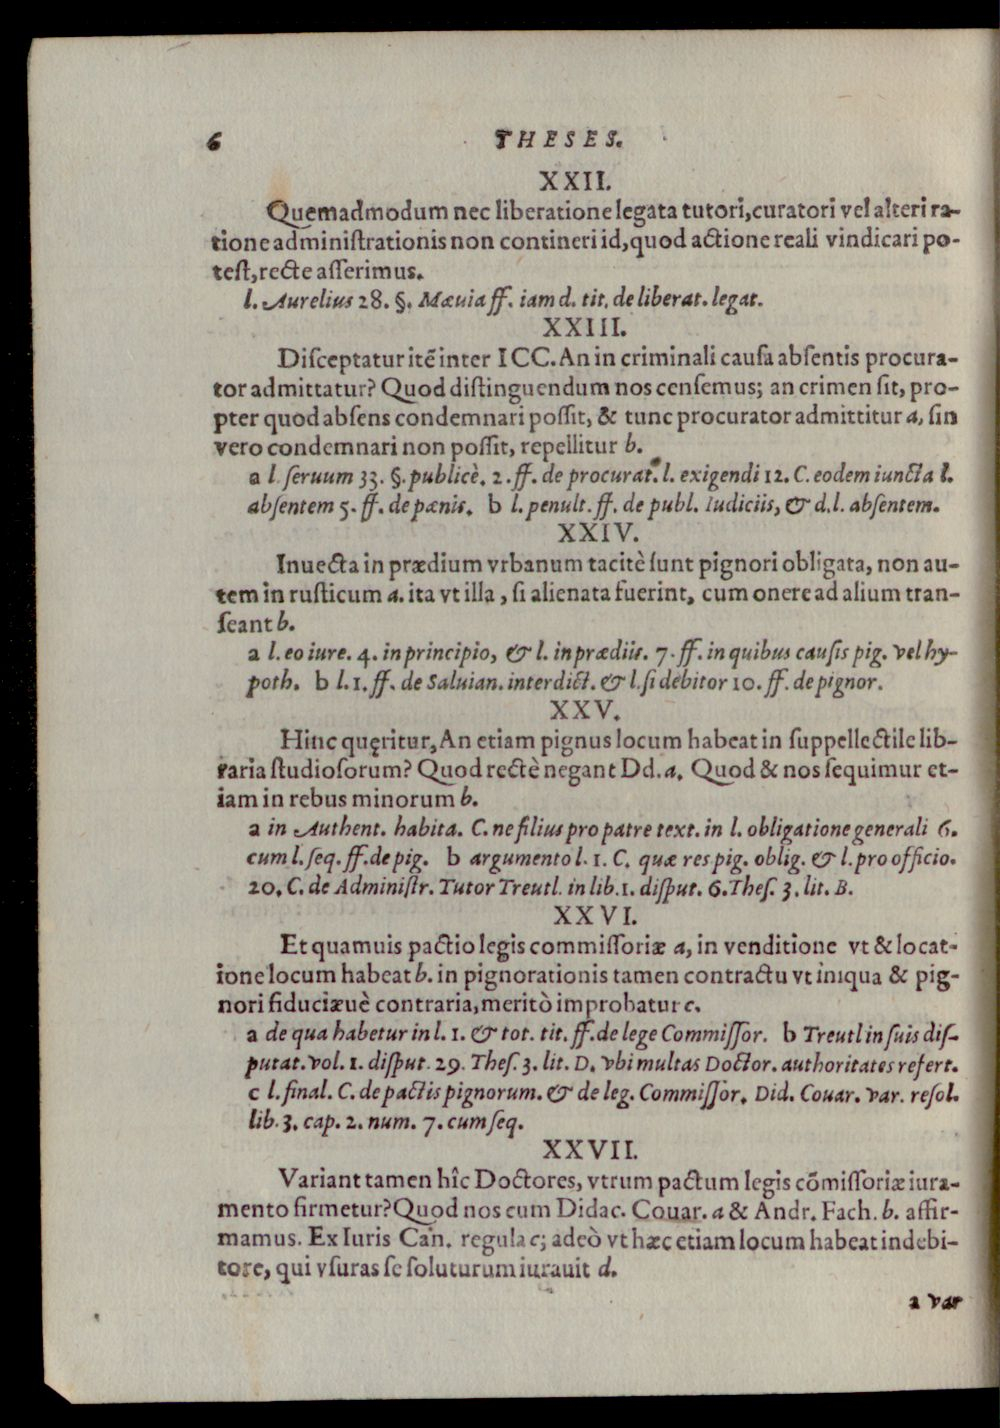 6 THESES.
XXII.
Quemadmodum nec liberatione legata tutori, curatori vel alteri ra-
tione adminiſtrationis non contineri id, quod actione reali vindicari po-
teſt, recte aſſerimus.
l. Aurelius 28. §. Mæuia ff. iam d. tit. de liberat. legat.
XXIII.
Diſceptatur itē inter ICC. An in criminali cauſa abſentis procura-
tor admittatur? Quod diſtinguendum nos cenſemus; an crimen ſit, pro-
pter quod abſens condemnari poſſit, & tunc procurator admittitur a, ſin
vero condemnari non poſſit, repellitur b.
a l. ſeruum 33. §. publicè. 2. ff. de procurat. l. exigendi 12. C. eodem iuncta l.
abſentem 5. ff. de pænis. b l. penult. ff. de publ. Iudiciis, & d. l. abſentem.
XXIV.
Inuecta in prædium vrbanum tacitè ſunt pignori obligata, non au-
tem in ruſticum a. ita vt illa, ſi alienata fuerint, cum onere ad alium tran-
ſeant b.
a l. eo iure. 4. in principio, & l. in prædiis. 7. ff. in quibus cauſis pig. vel hy-
poth. b l. 1. ff. de Saluian. interdict. & l. ſi debitor 10. ff. de pignor.
XXV.
Hinc quęritur, An etiam pignus locum habeat in ſuppellectile lib-
raria ſtudioſorum? Quod rectè negant Dd. a. Quod & nos ſequimur et-
iam in rebus minorum b.
a in Authent. habita. C. ne filius pro patre text. in l. obligatione generali 6.
cum l. ſeq. ff. de pig. b argumento l. 1. C. quæ res pig. oblig. & l. pro officio.
20. C. de Adminiſtr. Tutor Treutl. in lib. 1. diſput. 6. Theſ. 3. lit. B.
XXVI.
Et quamuis pactio legis commiſſoriæ a, in venditione vt & locat-
ione locum habeat b. in pignorationis tamen contractu vt iniqua & pig-
nori fiduciæuè contraria, meritò improbatur c.
a de qua habetur in l. 1. & tot. tit. ff. de lege Commiſſor. b Treutl in ſuis diſ-
putat. vol. 1. diſput. 29. Theſ. 3. lit. D. vbi multas Doctor. authoritates refert.
c l. final. C. de pactis pignorum. & de leg. Commiſſor. Did. Couar. var. reſol.
lib. 3. cap. 2. num. 7. cum ſeq.
XXVII.
Variant tamen hîc Doctores, vtrum pactum legis cōmiſſoriæ iura-
mento firmetur? Quod nos cum Didac. Couar. a & Andr. Fach. b. affir-
mamus. Ex Iuris Can. regula c; adeò vt hæc etiam locum habeat in debi-
tore, qui vſuras ſe ſoluturum iurauit d.
a var